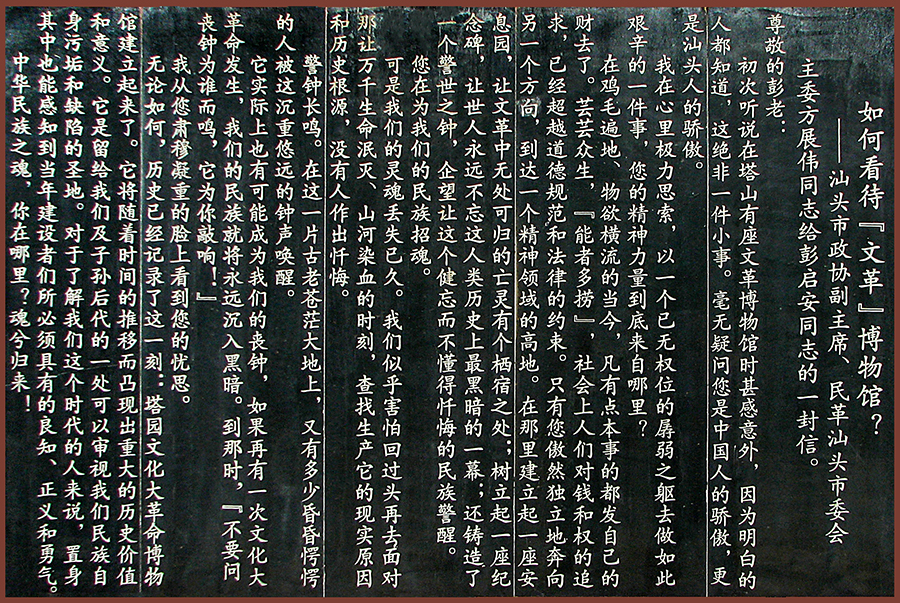 如何看待『文革』博物馆？
——汕头市政协副主席、民革汕头市委会
主委方展伟同志给彭启安同志的一封信。
尊敬的彭老：
初次听说在塔山有座文革博物馆时甚感意外，因为明白的
人都知道，这绝非一件小事。毫无疑问您是中国人的骄傲，更
是汕头人的骄傲。
我在心里极力思索，以一个已无权位的孱弱之躯去做如此
艰辛的一件事，您的精神力量到底来自哪里？
在鸡毛遍地 物欲横流的当今，凡有点本事的都发自己的
财去了。芸芸众生，『能者多捞』，社会上人们对钱和权的追
求，已经超越道德规范和法律的约束。只有您傲然独立地奔向
另一个方向，到达一个精神领域的高地。在那里建立起一座安
息园，让文革中无处可归的亡灵有个栖宿之处；树立起一座纪
念碑，让世人永远不忘这人类历史上最黑暗的一幕；还铸造了
一个警世之钟，企望让这个健忘而不懂得忏悔的民族警醒。
您在为我们的民族招魂。
可是我们的灵魂丢失已久。我们似乎害怕回过头再去面对
那让万千生命泯灭、山河染血的时刻，查找生产它的现实原因
和历史根源，没有人作出忏悔。
警钟长鸣。在这一片古老苍茫大地上，又有多少昏昏愕愕
的人被这沉重悠远的钟声唤醒。
它实际上也有可能成为我们的丧钟，如果再有一次文化大
革命发生，我们的民族就将永远沉入黑暗。到那时，『不要问
丧钟为谁而鸣，它为你敲响！』
我从您肃穆凝重的脸上看到您的忧思。
无论如何，历史已经记录了这一刻：塔园文化大革命博物
馆建立起来了。它将随着时间的推移而凸现出重大的历史价值
和意义。它是留给我们及子孙后代的一处可以审视我们民族自
身污垢和缺陷的圣地。对于了解我们这个时代的人来说，置身
其中也能感知到当年建设者们所必须具有的良知、正义和勇气。
中华民族之魂，你在哪里？魂兮归来！